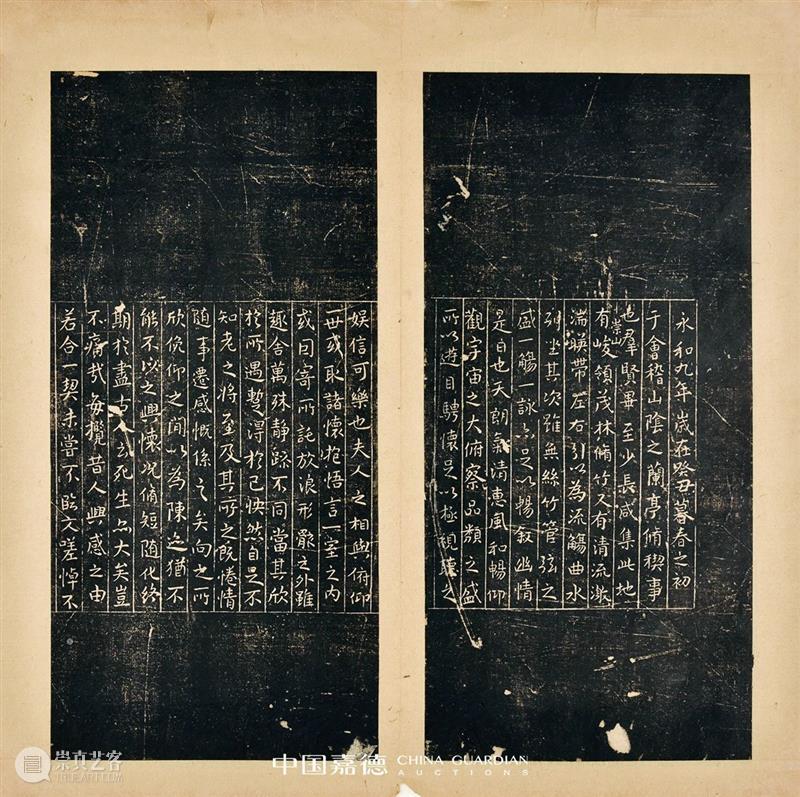 永和九年歲在癸丑暮春之初
于會稽山陰之蘭亭脩禊事
也羣賢畢至少長咸集此地
有崇山峻領茂林脩竹又有清流激
湍暎帶左右引以為流觴曲水
列坐其次雖無絲竹管弦之
盛一觴一詠亦足以暢敘幽情
是日也天朗氣清惠風和暢仰
觀宇宙之大俯察品類之盛
所以遊目騁懷足以極視聽之
娛信可樂也夫人之相與俯仰
一世或取諸懷抱悟言一室之內
或因寄所託放浪形骸之外雖
趣舍萬殊靜躁不同當其欣
於所遇蹔得於己怏然自足不
知老之將至及其所之既惓情
隨事遷感慨係之矣向之所
欣俛仰之間以為陳迹猶不
能不以之興懷況脩短隨化終
期於盡古人云死生亦大矣豈
不痛哉每攬昔人興感之由
若合一契未嘗不臨文嗟悼不
崇真艺客
中国嘉德 CHINA GUARDIAN
AUCTIONS